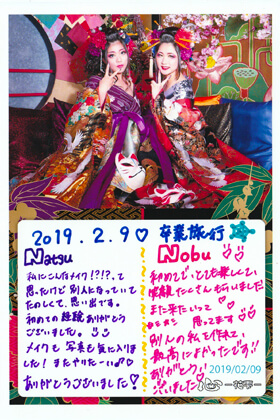 2019.2.9♡ 卒業旅行
Natsu
私にこんなメイク!?!?って
思ったけど別人になっていて
たのしくて、思い出です。
初めての経験ありがとう
ございました。
メイクも写真も気に入りま
した！またやりたーい
ありがとうございました♡
Nobu
初めてで、とても楽しくて
笑顔たくさんもらいました
また来たいって
思ってます
別人の私を作れて、
最高によかったです!!
ありがとう
ございました!
2019/02/09